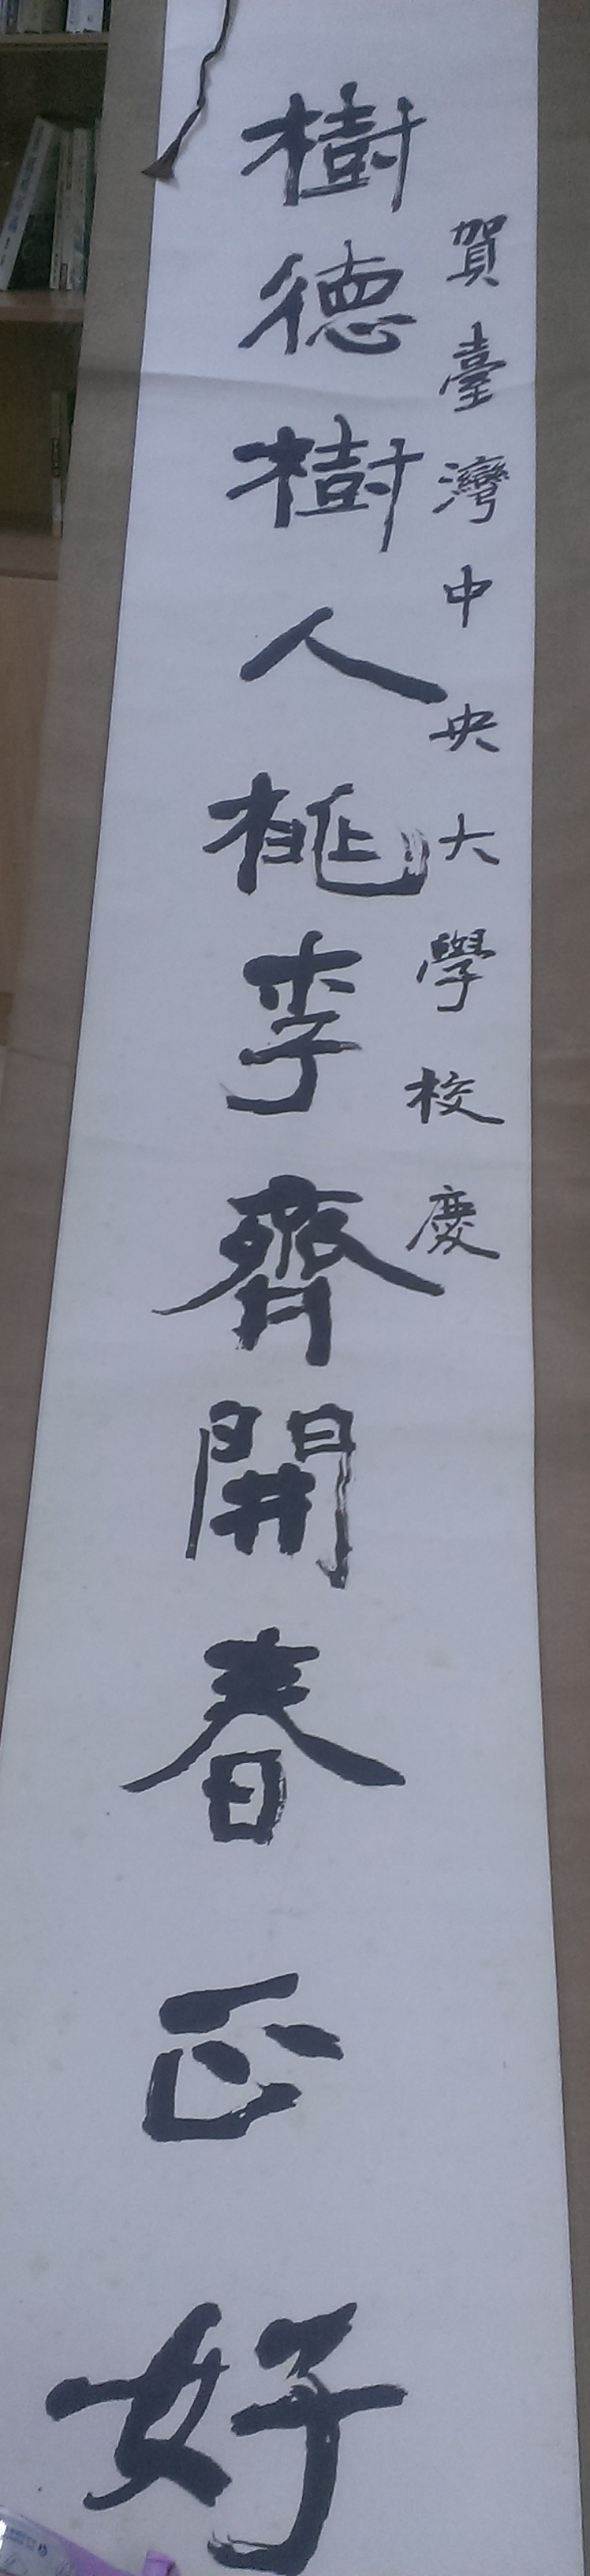 賀臺灣中央大學校慶
樹德樹人桃李齊開春正好